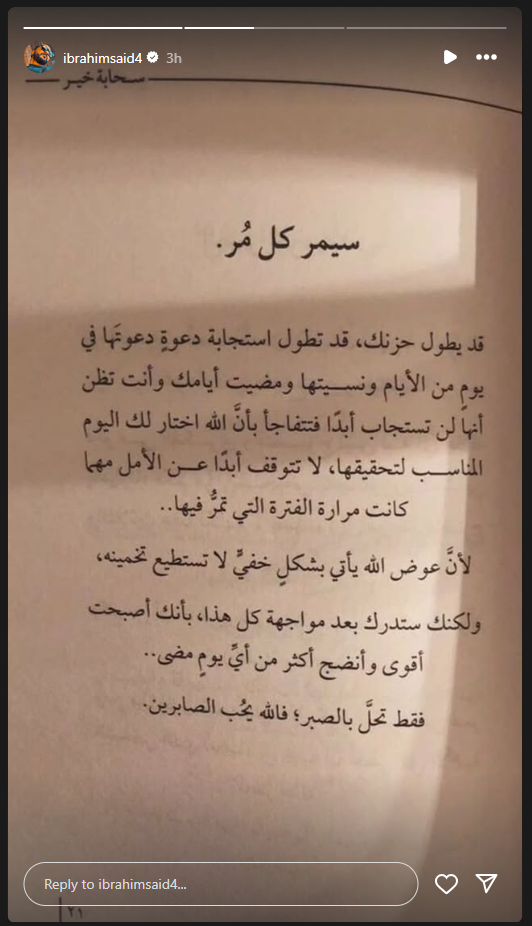 ibrahimsaid4 3h
سحابة خير
سيمر كل مُر.
قد يطول حزنك، قد تطول استجابة دعوةٍ دعوتَها في
يومٍ من الأيام ونسيتها ومضيت أيامك وأنت تظن
أنها لن تستجاب أبدًا فتتفاجأ بأنَّ الله اختار لك اليوم
المناسب لتحقيقها، لا تتوقف أبدًا عن الأمل مهما
كانت مرارة الفترة التي تمرُّ فيها..
لأنَّ عوض الله يأتي بشكلٍ خفيٍّ لا تستطيع تخمينه،
ولكنك ستدرك بعد مواجهة كل هذا، بأنك أصبحت
أقوى وأنضج أكثر من أيِّ يومٍ مضى..
فقط تحلَّ بالصبر؛ فالله يحُب الصابرين.
Reply to ibrahimsaid4...
٢١